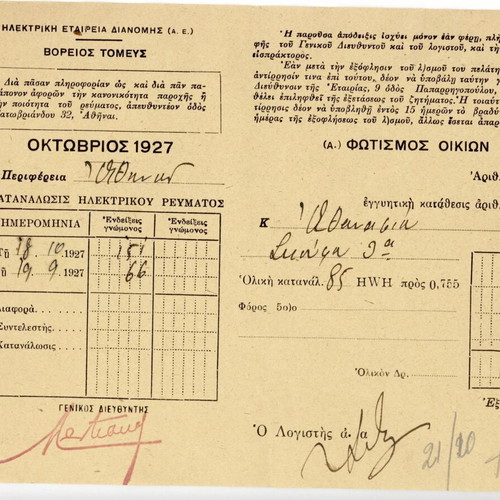 ΗΛΕΚΤΡΙΚΗ ΕΤΑΙΡΕΙΑ ΔΙΑΝΟΜΗΣ (Α. Ε.)
ΒΟΡΕΙΟΣ ΤΟΜΕΥΣ
Διὰ πᾶσαν πληροφορίαν ὡς καὶ διὰ πᾶν πα-
άπονον ἀφορῶν τὴν κανονικότητα παροχῆς ἢ
ὴν ποιότητα τοῦ ρεύματος, ἀπευθυντέον ὁδὸς
ατωβριάνδου 32, Ἀθῆναι.
ΟΚΤΩΒΡΙΟΣ 1927
Περιφέρεια
ΚΑΤΑΝΑΛΩΣΙΣ ΗΛΕΚΤΡΙΚΟΥ ΡΕΥΜΑΤΟΣ
ΗΜΕΡΟΜΗΝΙΑ Ἐνδείξεις γνώμονος Ἐνδείξεις γνώμονος
Τῇ 18/10/1927 151
ῇ 19/9/1927 66
Διαφορά.
Συντελεστὴς.
Κατανάλωσις
ΓΕΝΙΚΟΣ ΔΙΕΥΘΥΝΤΗΣ
Ἡ παροῦσα ἀπόδειξις ἰσχύει μόνον ἐὰν φέρῃ, πλὴ
φῆς τοῦ Γενικοῦ Διευθυντοῦ καὶ τοῦ λογιστοῦ, καὶ τὴν
εἰσπράκτορος.
Ἐὰν μετὰ τὴν ἐξόφλησιν τοῦ λ)σμοῦ τοῦ πελάτη
ἀντίρρησίν τινα ἐπὶ τούτου, δέον νὰ ὑποβάλῃ ταύτην γ
Διεύθυνσιν τῆς Ἑταιρίας, 9 ὁδὸς Παπαρρηγοπούλου,
θέλει ἐπιληφθῆ τῆς ἐξετάσεως τοῦ ζητήματος. Ἡ τοιαύτ
τίρρησις δέον νὰ ὑποβληθῇ ἐντὸς 15 ἡμερῶν τὸ βραδύ
ἡμέρας τῆς ἐξοφλήσεως τοῦ λ)σμοῦ, ἄλλως ἔσεται ἀπαρά
(Α.) ΦΩΤΙΣΜΟΣ ΟΙΚΙΩΝ
Ἀριθ.
ἐγγυητικὴ κατάθεσις ἀριθ
Κ Ἀθανασία
9α
Ὁλικὴ κατανάλ. 85 HWH πρὸς 0,755
Φόρος 5ο)ο
Ὁλικὸν Δρ.
Ἐξ
Ὁ Λογιστὴς ἀ.α
21/20